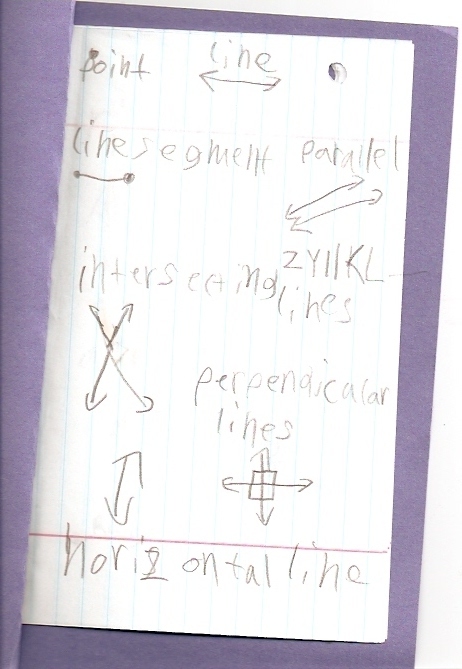 point line
line segment parallel
ZY||KL
intersecting lines
perpendicular
lines
horizontal line